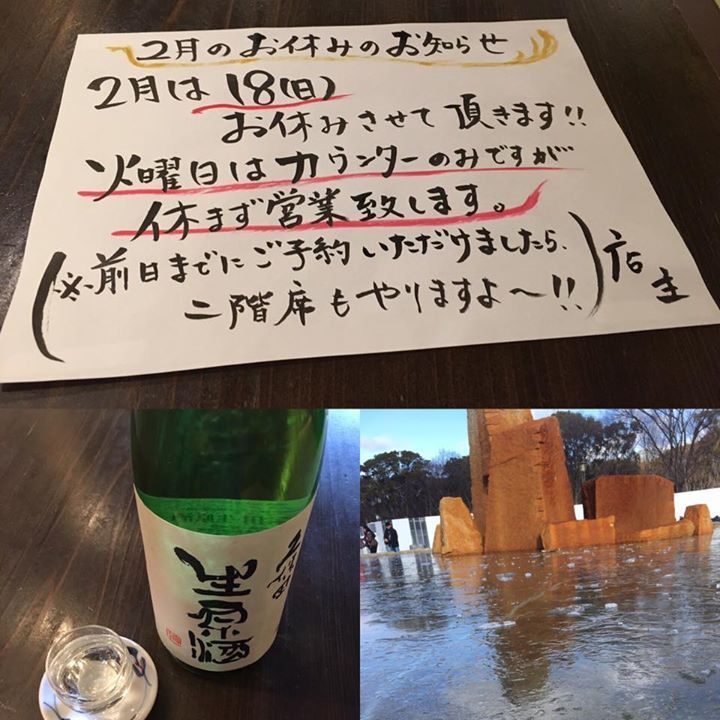 2月のお休みのお知らせ
2月は18(日)
お休みさせて頂きます!!
火曜日はカウンターのみですが
休まず営業致します。
(※前日までにご予約いただけましたら、
二階席もやりますよ〜!!)
店主
生原酒